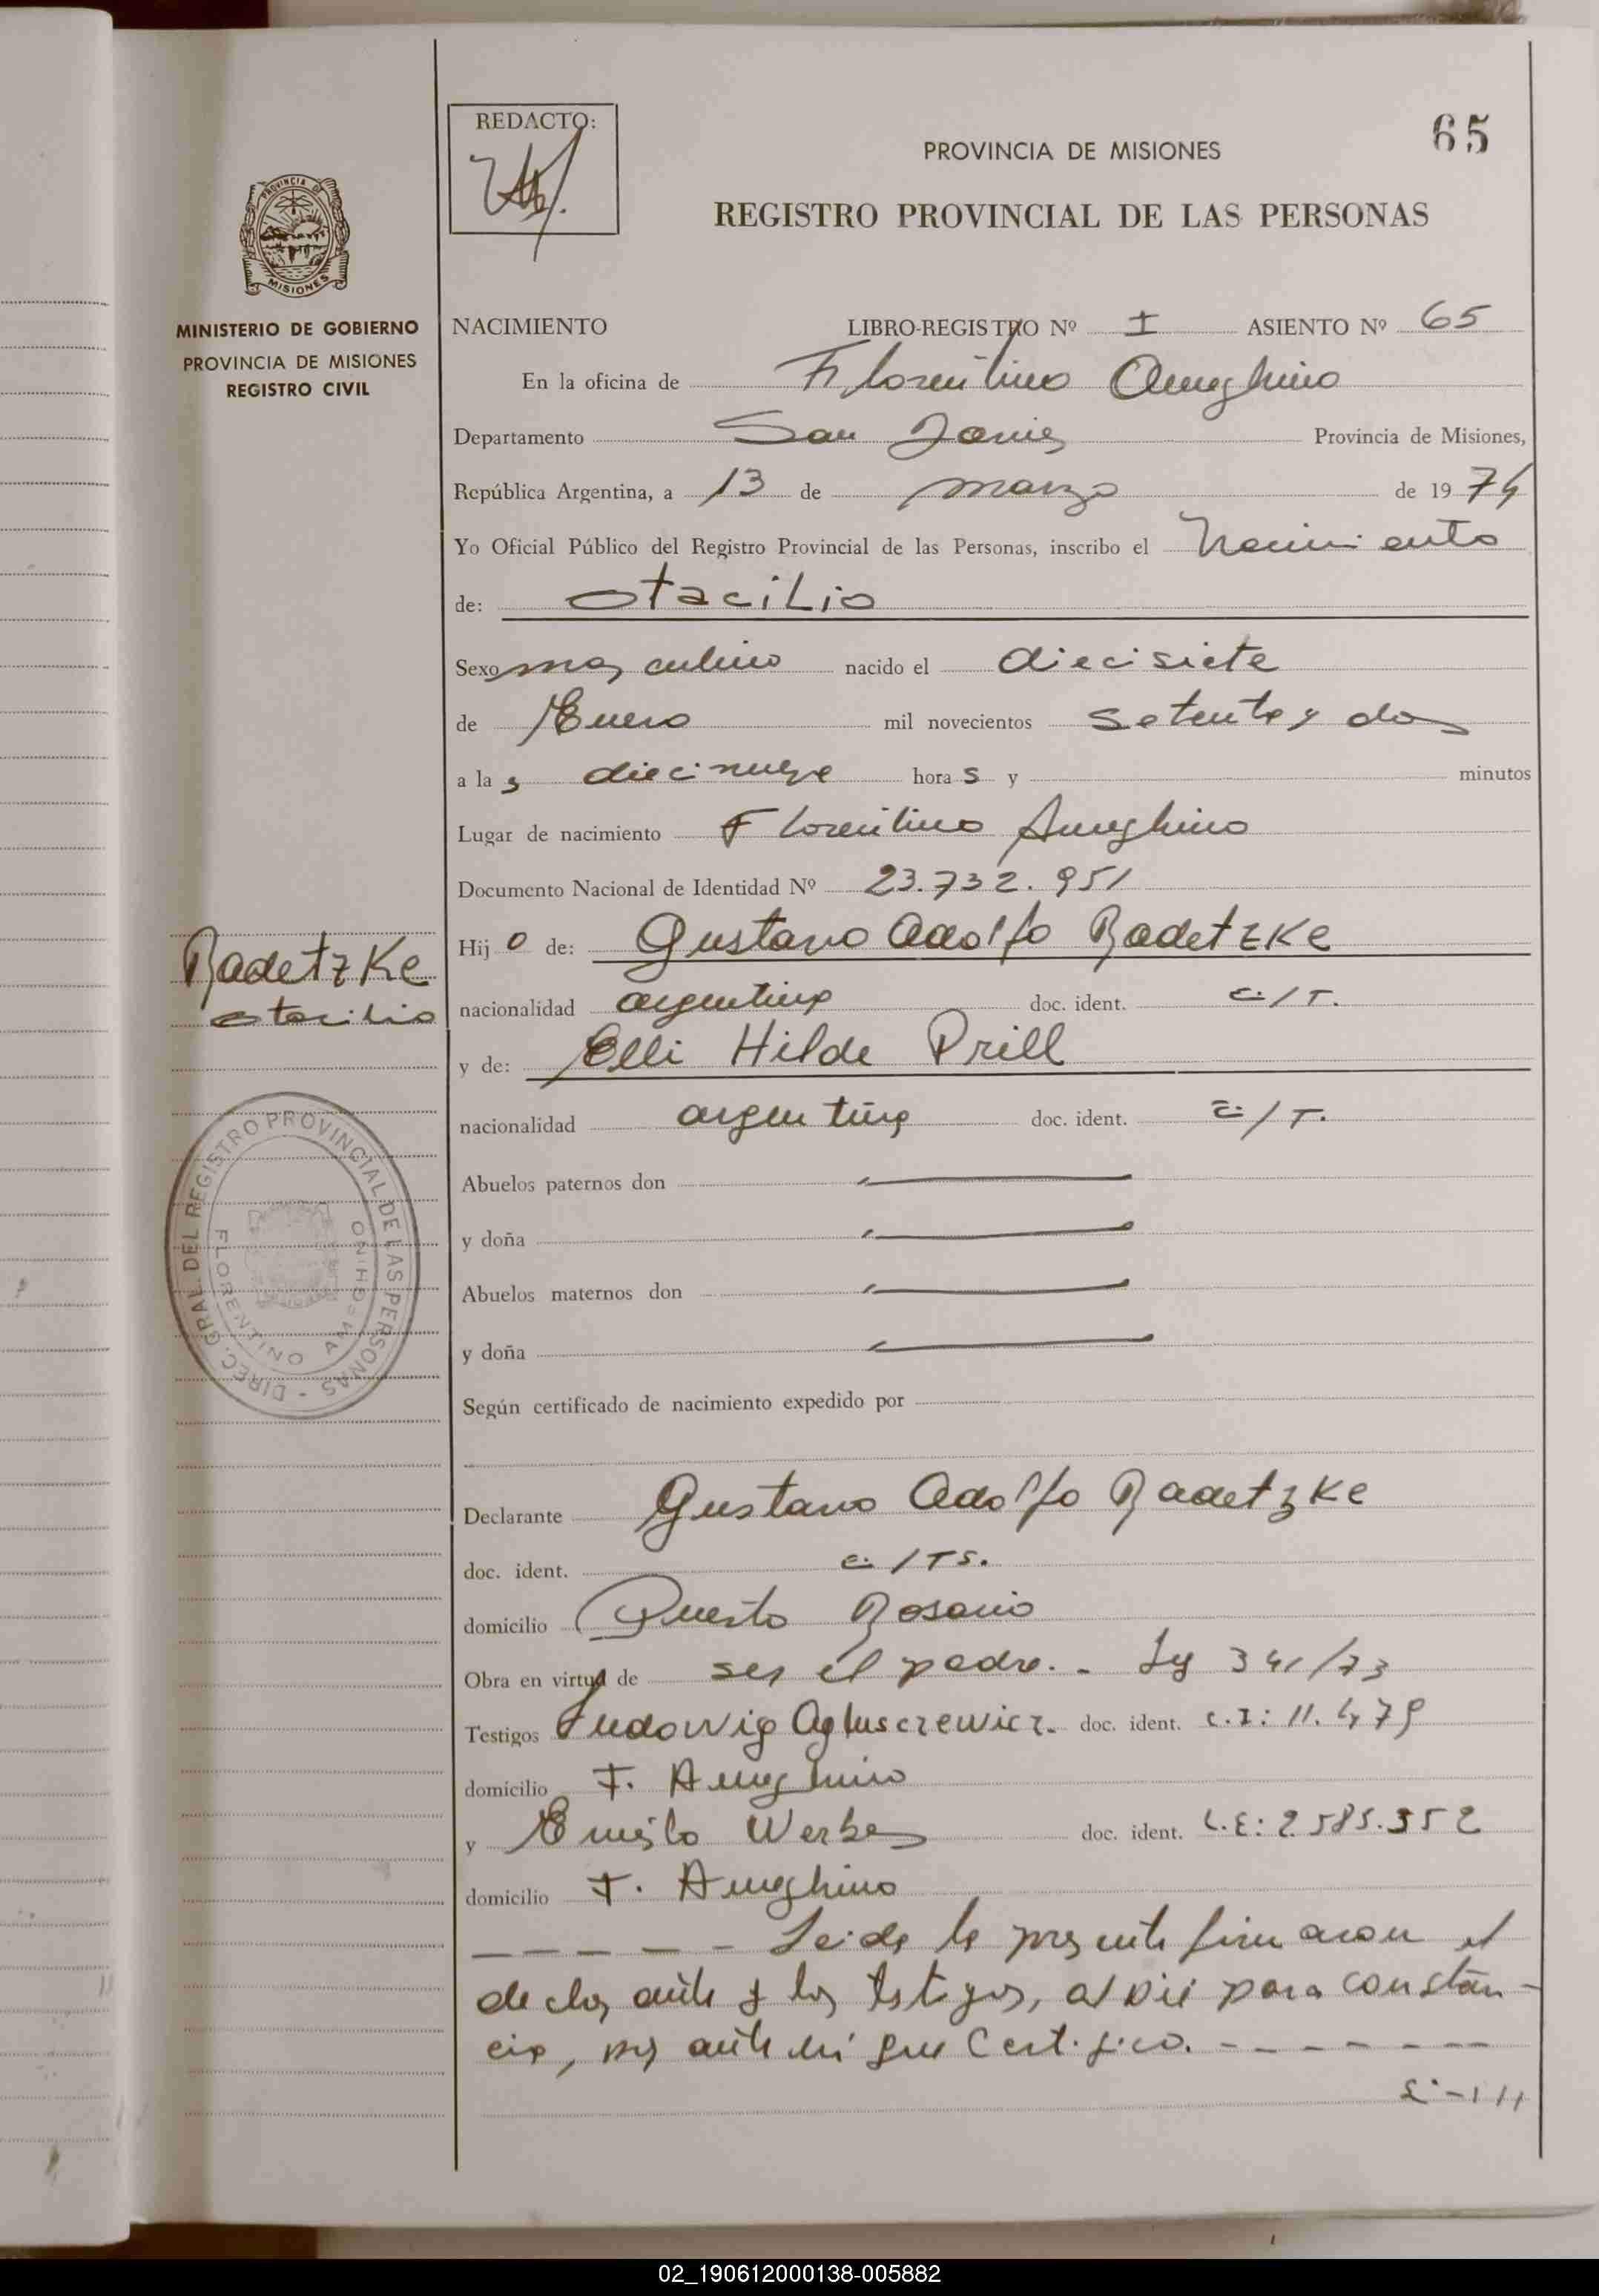 REDACTO:
65
PROVINCIA DE MISIONES
REGISTRO PROVINCIAL DE LAS PERSONAS
PROVINCIA DE
MISIONES
MINISTERIO DE GOBIERNO
PROVINCIA DE MISIONES
REGISTRO CIVIL
NACIMIENTO LIBRO-REGISTRO Nº I ASIENTO Nº 65
En la oficina de Florentino Ameghino
Departamento San Javier Provincia de Misiones,
República Argentina, a 13 de marzo de 1974
Yo Oficial Público del Registro Provincial de las Personas, inscribo el Nacimiento
de: Otacilio
Sexo masculino nacido el diecisiete
de Enero mil novecientos setenta y dos
a las diecinueve horas y minutos
Lugar de nacimiento Florentino Ameghino
Documento Nacional de Identidad Nº 23.732.951
Hijo de: Gustavo Adolfo Radetzke
Radetzke
Otacilio
nacionalidad argentina doc. ident. c./T.
y de: Elli Hilde Prill
nacionalidad argentina doc. ident. c./T.
Abuelos paternos don
y doña
Abuelos maternos don
y doña
DIREC. GRAL. DEL REGISTRO PROVINCIAL DE LAS PERSONAS -
FLORENTINO AMEGHINO
Según certificado de nacimiento expedido por
Declarante Gustavo Adolfo Radetzke
doc. ident. c./TS.
domicilio Puerto Rosario
Obra en virtud de ser el padre. - Ley 341/73
Testigos Ludowig Agluszewicz. doc. ident. C.I: 11.479
domicilio F. Ameghino
y Emilo Werbes doc. ident. L.E: 2.585.352
domicilio F. Ameghino
_ _ _ _ _ - Leida la presente firmaron el
declarante y los testigos, al pie para constan-
cia, por ante mi que Certifico. - - - - - - -
02_190612000138-005882